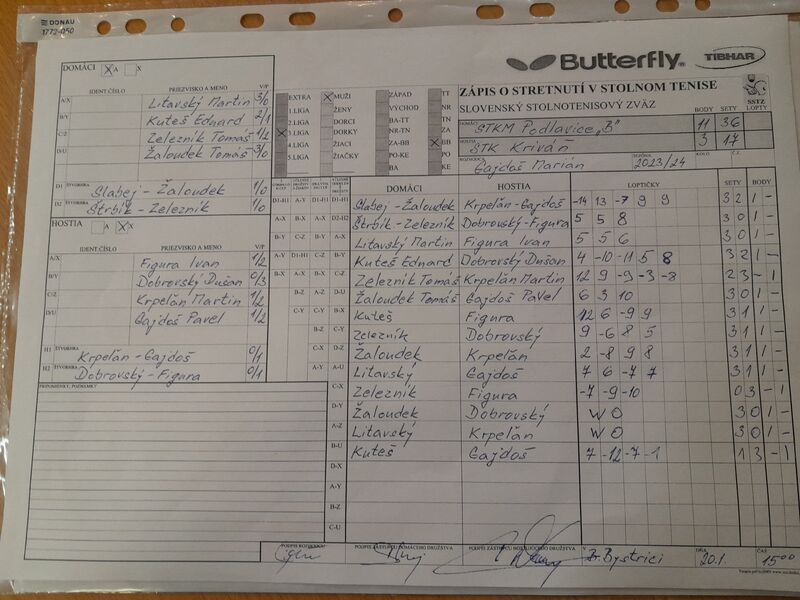 DONAU
1772-050
DOMÁCI X A X
IDENT.ČÍSLO PRIEZVISKO A MENO V/P
A/X Litavský Martin 3/0
B/Y Kuteš Ednard 2/1
C/Z Železník Tomáš 1/2
D/U Žaloudek Tomáš 3/0
D1 ŠTVORHRA Slabej - Žaloudek 1/0
D2 ŠTVORHRA Štrbik - Železník 1/0
HOSTIA A X
IDENT.ČÍSLO PRIEZVISKO A MENO V/P
A/X Figura Ivan 1/2
B/Y Dobrovský Dušan 0/3
C/Z Krpelán Martin 1/2
D/U Gajdoš Pavel 1/2
H1 ŠTVORHRA Krpelán - Gajdoš 0/1
H2 ŠTVORHRA Dobrovský - Figura 0/1
PRIPOMIENKY, POZNÁMKY
EXTRA X MUŽI ZÁPAD TT
1.LIGA ŽENY VÝCHOD NR
2.LIGA DORCI BA-TT TN
X 3.LIGA DORKY NR-TN ZA
4.LIGA ŽIACI ZA-BB X BB
5.LIGA ŽIAČKY PO-KE PO
BA KE
Butterfly TIBHAR
ZÁPIS O STRETNUTÍ V STOLNOM TENISE
SLOVENSKÝ STOLNOTENISOVÝ ZVÄZ
SSTZ
BODY SETY LOPTY
DOMÁCI STKM Podlavice „B" 11 36
HOSTIA STK Kriváň 3 17
ROZHODCA Gajdoš Marián SEZÓNA 2023/24 KOLO Č.Z.
DOMÁCI HOSTIA LOPTIČKY SETY BODY
D1-H1 A-Y D1-H1 D1-H1 Slabej - Žaloudek Krpelán - Gajdoš -14 13 -7 9 9 3 2 1 -
A-X B-X A-X D2-H2 Štrbik - Železník Dobrovský - Figura 5 5 8 3 0 1 -
B-Y C-Z B-Y A-X Litavský Martin Figura Ivan 5 5 6 3 0 1 -
A-Y D1-H1 C-Z B-Y Kuteš Ednard Dobrovský Dušan 4 -10 -11 5 8 3 2 1 -
B-X A-X B-X C-Z Železník Tomáš Krpelán Martin 12 9 -9 -3 -8 2 3 - 1
B-Z A-Z D-U Žaloudek Tomáš Gajdoš Pavel 6 3 10 3 0 1 -
C-Y C-Y B-X Kuteš Figura 12 6 -9 9 3 1 1 -
B-Z C-Y Železník Dobrovský 9 -6 8 5 3 1 1 -
C-X D-Z Žaloudek Krpelán 2 -8 9 8 3 1 1 -
A-Y A-U Litavský Gajdoš 7 6 -7 7 3 1 1 -
C-X Železník Figura -7 -9 -10 0 3 - 1
D-Y Žaloudek Dobrovský W O 3 0 1 -
A-Z Litavský Krpelán W O 3 0 1 -
B-U Kuteš Gajdoš 7 -12 -7 -1 1 3 - 1
D-X
A-Y
B-Z
C-U
PODPIS ROZHODCU PODPIS ZÁSTUPCU DOMÁCEHO DRUŽSTVA PODPIS ZÁSTUPCU HOSŤUJÚCEHO DRUŽSTVA V B. Bystrici DŇA 20.1. ČAS 15°°